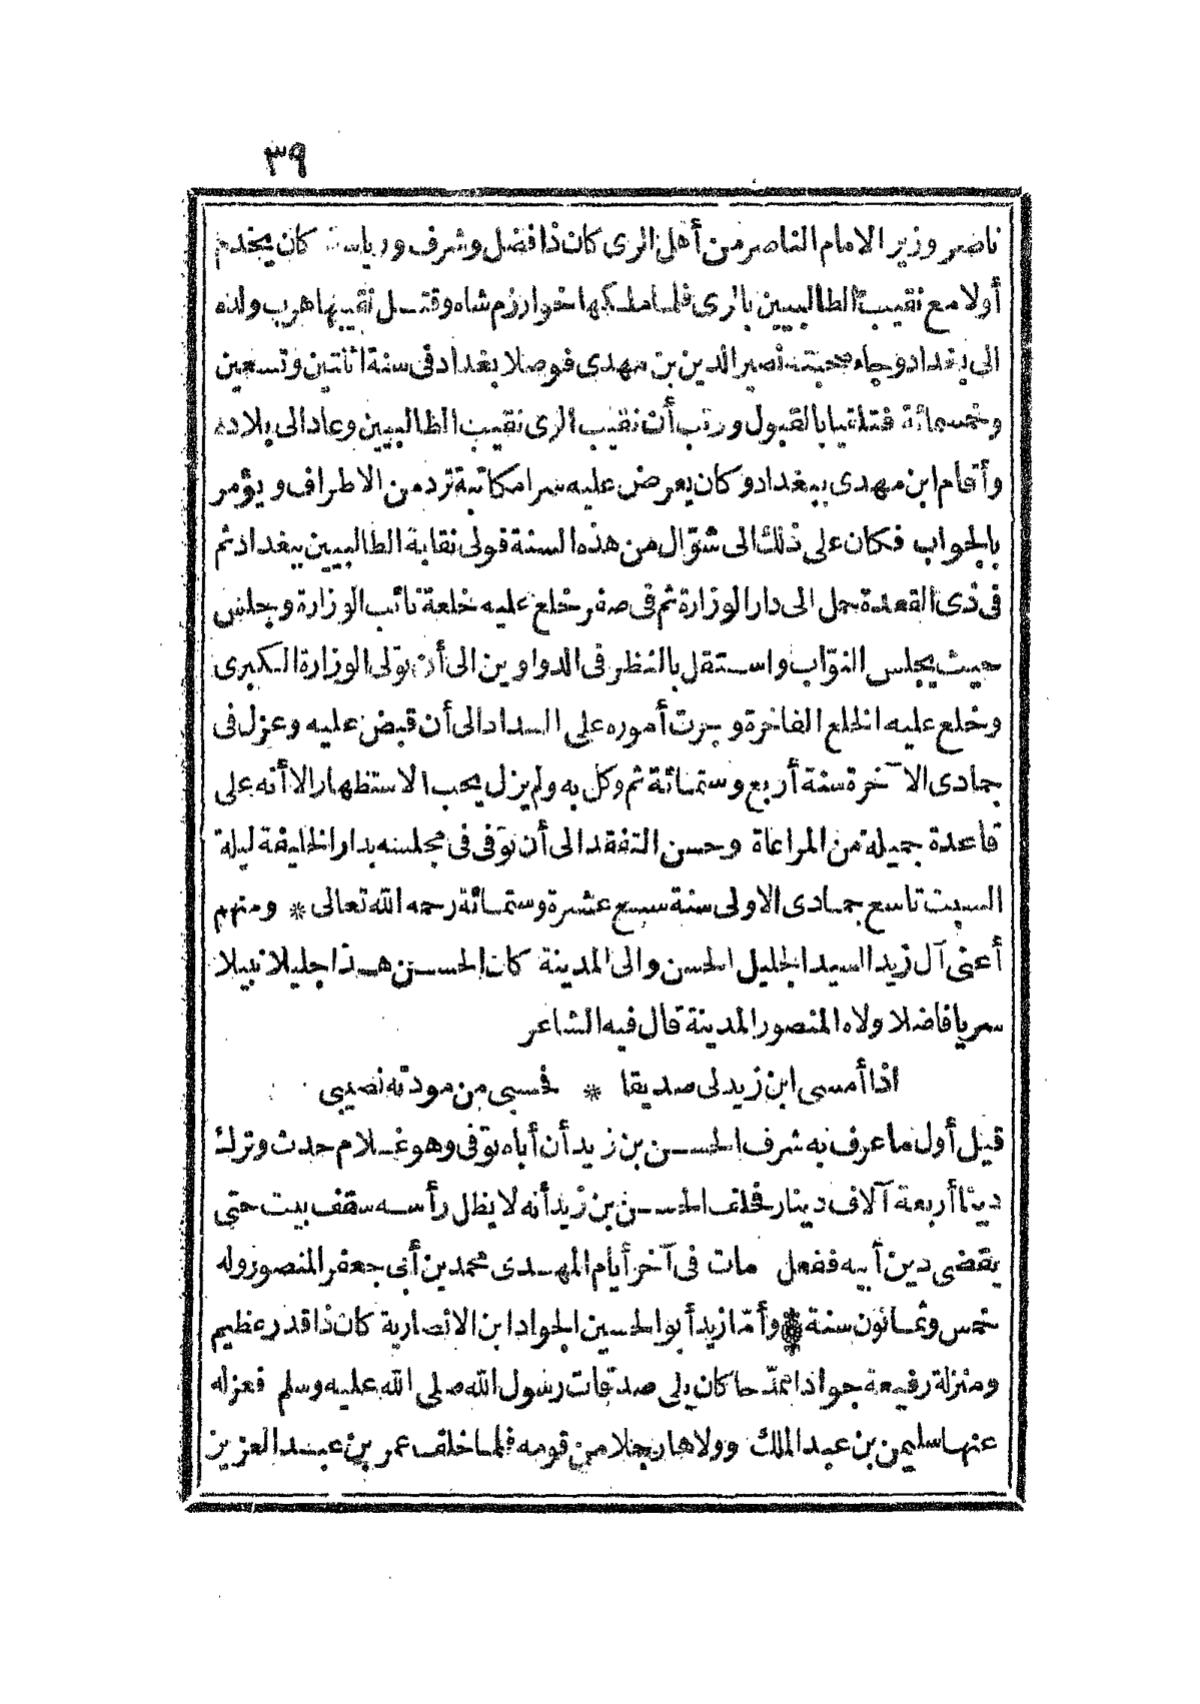 ٣٩
ناصر وزير الامام الناصر من أهل الرى كان ذا فضل وشرف ورياسة كان يخدم
أولا مع نقيب الطالبيين بالرى فلما ملكها خوارزم شاه وقتل نقيبها هرب ولده
الى بغداد وجاء صحبته نصير الدين بن مهدى فوصلا بغداد فى سنة اثنتين وتسعين
وخمسمائة فتلقيا بالقبول ورتب أن نقيب الرى نقيب الطالبيين وعاد الى بلاده
وأقام ابن مهدى ببغداد وكان يعرض عليه سرا مكاتبة ترد من الاطراف ويؤمر
بالجواب فكان على ذلك الى شوّال من هذه السنة فولى نقابة الطالبيين ببغداد ثم
فى ذى القعدة حمل الى دار الوزارة ثم فى صفر خلع عليه خلعة نائب الوزارة وجلس
حيث يجلس النوّاب واستقل بالنظر فى الدواوين الى أن تولى الوزارة الكبرى
وخلع عليه الخلع الفاخرة وجرت أموره على السداد الى أن قبض عليه وعزل فى
جمادى الآخرة سنة أربع وستمائة ثم وكل به ولم يزل يحب الاستظهار الا أنه على
قاعدة جميلة من المراعاة وحسن التفقد الى أن توفى فى مجلسه بدار الخليفة ليلة
السبت تاسع جمادى الاولى سنة سبع عشرة وستمائة رحمه الله تعالى * ومنهم
أعنى آل زيد السيد الجليل الحسن والى المدينة كان الحسن هذا جليلا نبيلا
سريا فاضلا ولاه المنصور المدينة قال فيه الشاعر
اذا أمسى ابن زيد لى صديقا * فحسبى من مودته نصيبى
قيل أول ما عرف به شرف الحسن بن زيد أن أباه توفى وهو غلام حدث وترك
دينا أربعة آلاف دينار فحلف الحسن بن زيد أنه لا يظل رأسه سقف بيت حتى
يقضى دين أبيه ففعل مات فى آخر أيام المهدى محمد بن أبى جعفر المنصور وله
خمس وثمانون سنة * وأمّا زيد أبو الحسين الجواد ابن الانصارية كان ذا قدر عظيم
ومنزلة رفيعة جوادا ممدّحا كان يلى صدقات رسول الله صلى الله عليه وسلم فعزله
عنها سليمن بن عبد الملك وولاها رجلا من قومه فلما خلف عمر بن عبد العزيز